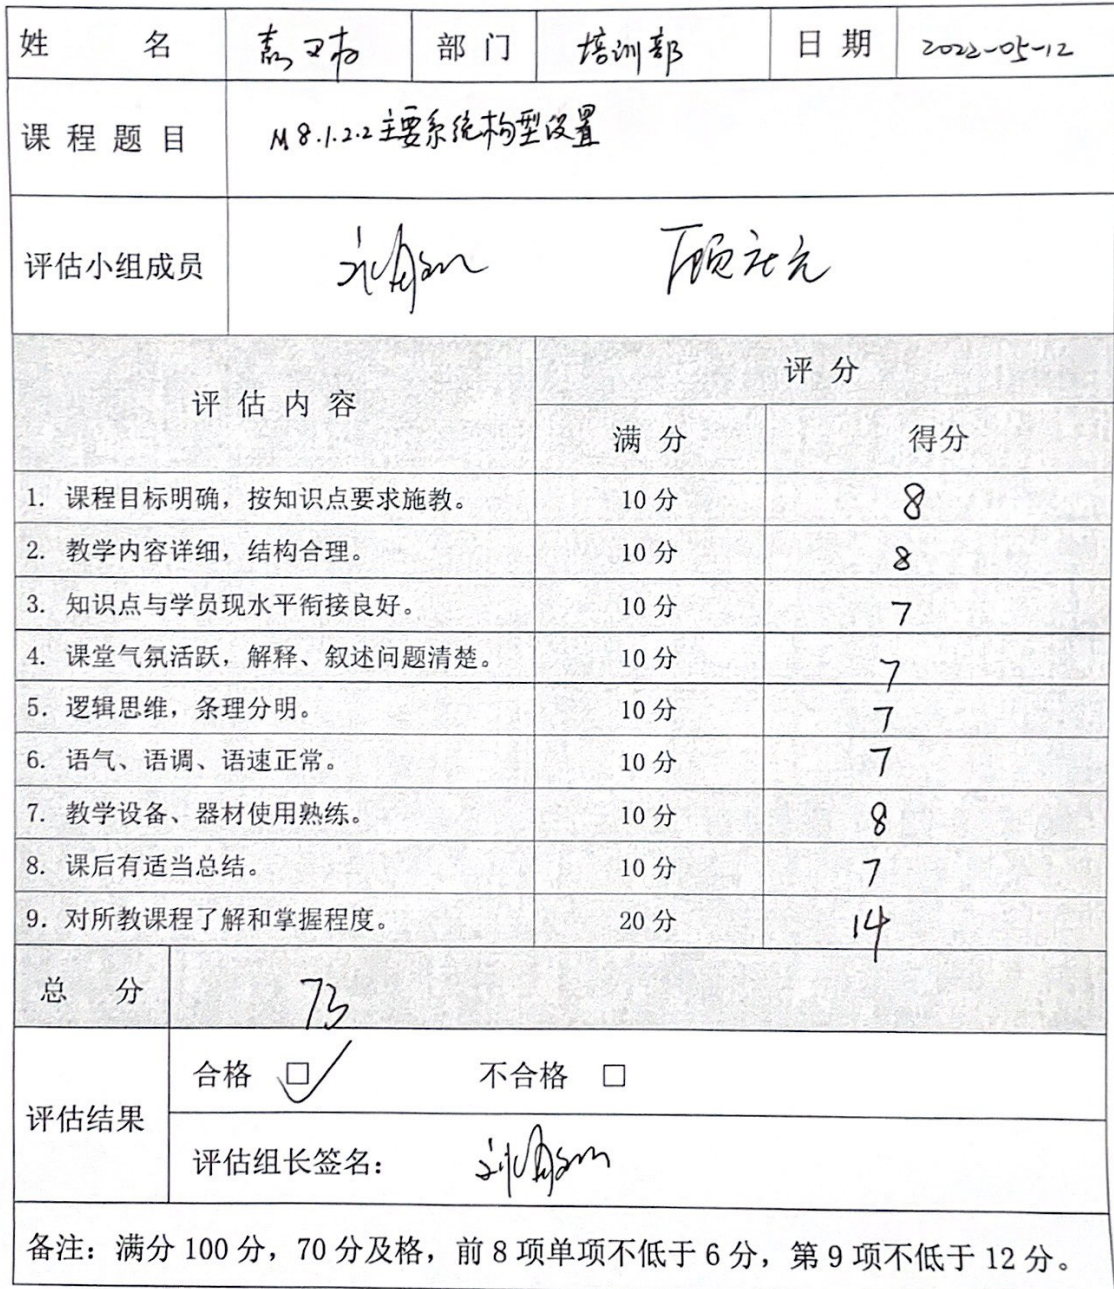 姓 名 部门 培训部 日期 2022-05-12
课程题目 M8.1.2.2主要系统构型设置
评估小组成员 顾庄元
评估内容 评分
满分 得分
1. 课程目标明确，按知识点要求施教。 10分 8
2. 教学内容详细，结构合理。 10分 8
3. 知识点与学员现水平衔接良好。 10分 7
4. 课堂气氛活跃，解释、叙述问题清楚。 10分 7
5. 逻辑思维，条理分明。 10分 7
6. 语气、语调、语速正常。 10分 7
7. 教学设备、器材使用熟练。 10分 8
8. 课后有适当总结。 10分 7
9. 对所教课程了解和掌握程度。 20分 14
总 分 73
评估结果 合格 ☑ 不合格 □
评估组长签名：
备注：满分100分，70分及格，前8项单项不低于6分，第9项不低于12分。